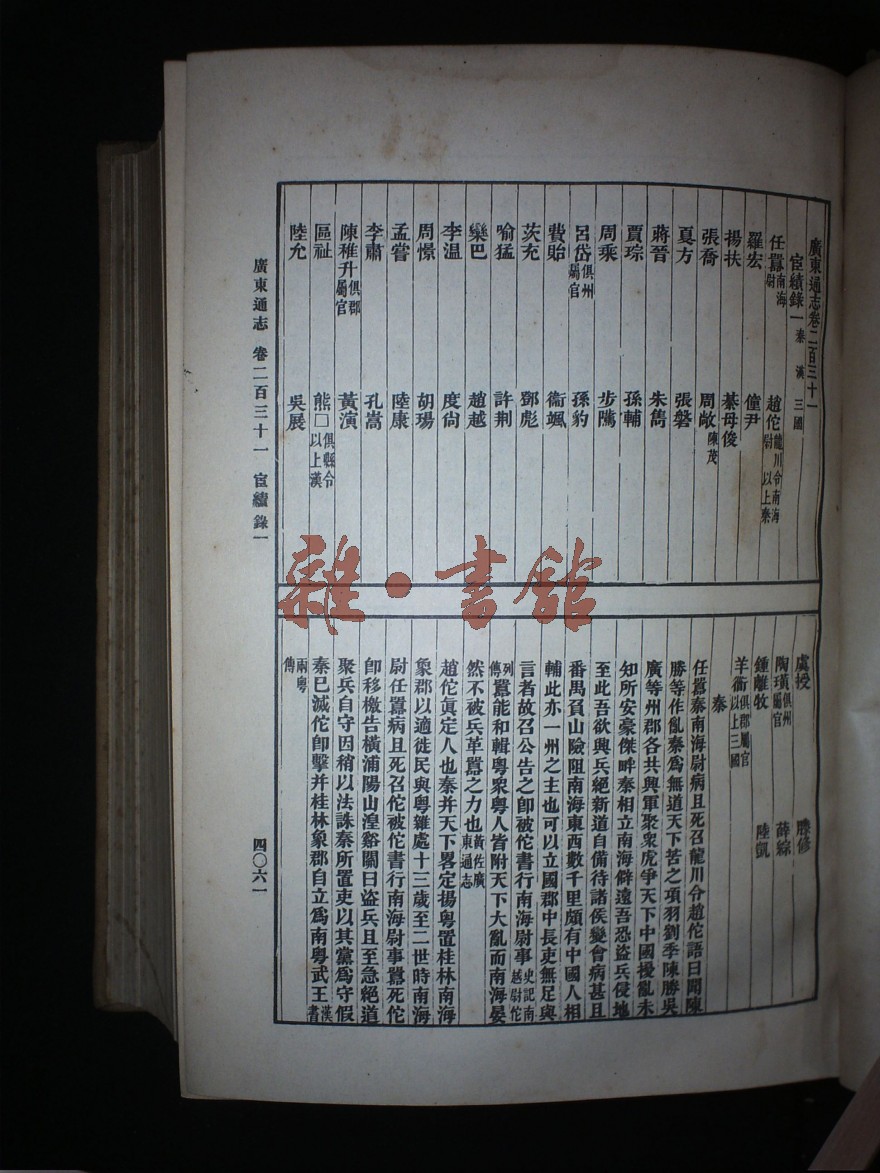 廣東通志卷二百三十一
宦績錄一 秦 漢 三國
任囂 南海尉 趙佗 龍川令南海尉 以上秦
羅宏 僮尹
揚扶 綦母俊
張喬 周敞 陳茂
夏方 張磐
蔣晉 朱雋
賈琮 孫輔
周乘 步隲
呂岱 俱州屬官 孫豹
費貽 衞颯
茨充 鄧彪
喻猛 許荆
欒巴 趙越
李溫 度尚
周憬 胡瑒
孟嘗 陸康
李肅 孔嵩
陳稚升 俱郡屬官 黃演
區祉 熊□ 俱縣令 以上漢
陸允 吳展
虞授 滕修
陶璜 俱州屬官 薛綜
鍾離牧 陸凱
羊衜 俱郡屬官 以上三國
秦
任囂秦南海尉病且死召龍川令趙佗語曰聞陳
勝等作亂秦爲無道天下苦之項羽劉季陳勝吳
廣等州郡各共興軍聚衆虎爭天下中國擾亂未
知所安豪傑畔秦相立南海僻遠吾恐盜兵侵地
至此吾欲興兵絕新道自備待諸侯變會病甚且
番禺負山險阻南海東西數千里頗有中國人相
輔此亦一州之主也可以立國郡中長吏無足與
言者故召公告之卽被佗書行南海尉事 史記南越尉佗
列傳 囂能和輯粵衆粵人皆附天下大亂而南海晏
然不被兵革囂之力也 黃佐廣東通志
趙佗眞定人也秦并天下畧定揚粵置桂林南海
象郡以適徙民與粵雜處十三歲至二世時南海
尉任囂病且死召佗被佗書行南海尉事囂死佗
卽移檄告橫浦陽山湟谿關曰盜兵且至急絕道
聚兵自守因稍以法誅秦所置吏以其黨爲守假
秦已滅佗卽擊并桂林象郡自立爲南粵武王 漢書
兩粵傳
廣東通志 卷二百三十一 宦績錄一
四〇六一
雜·書館